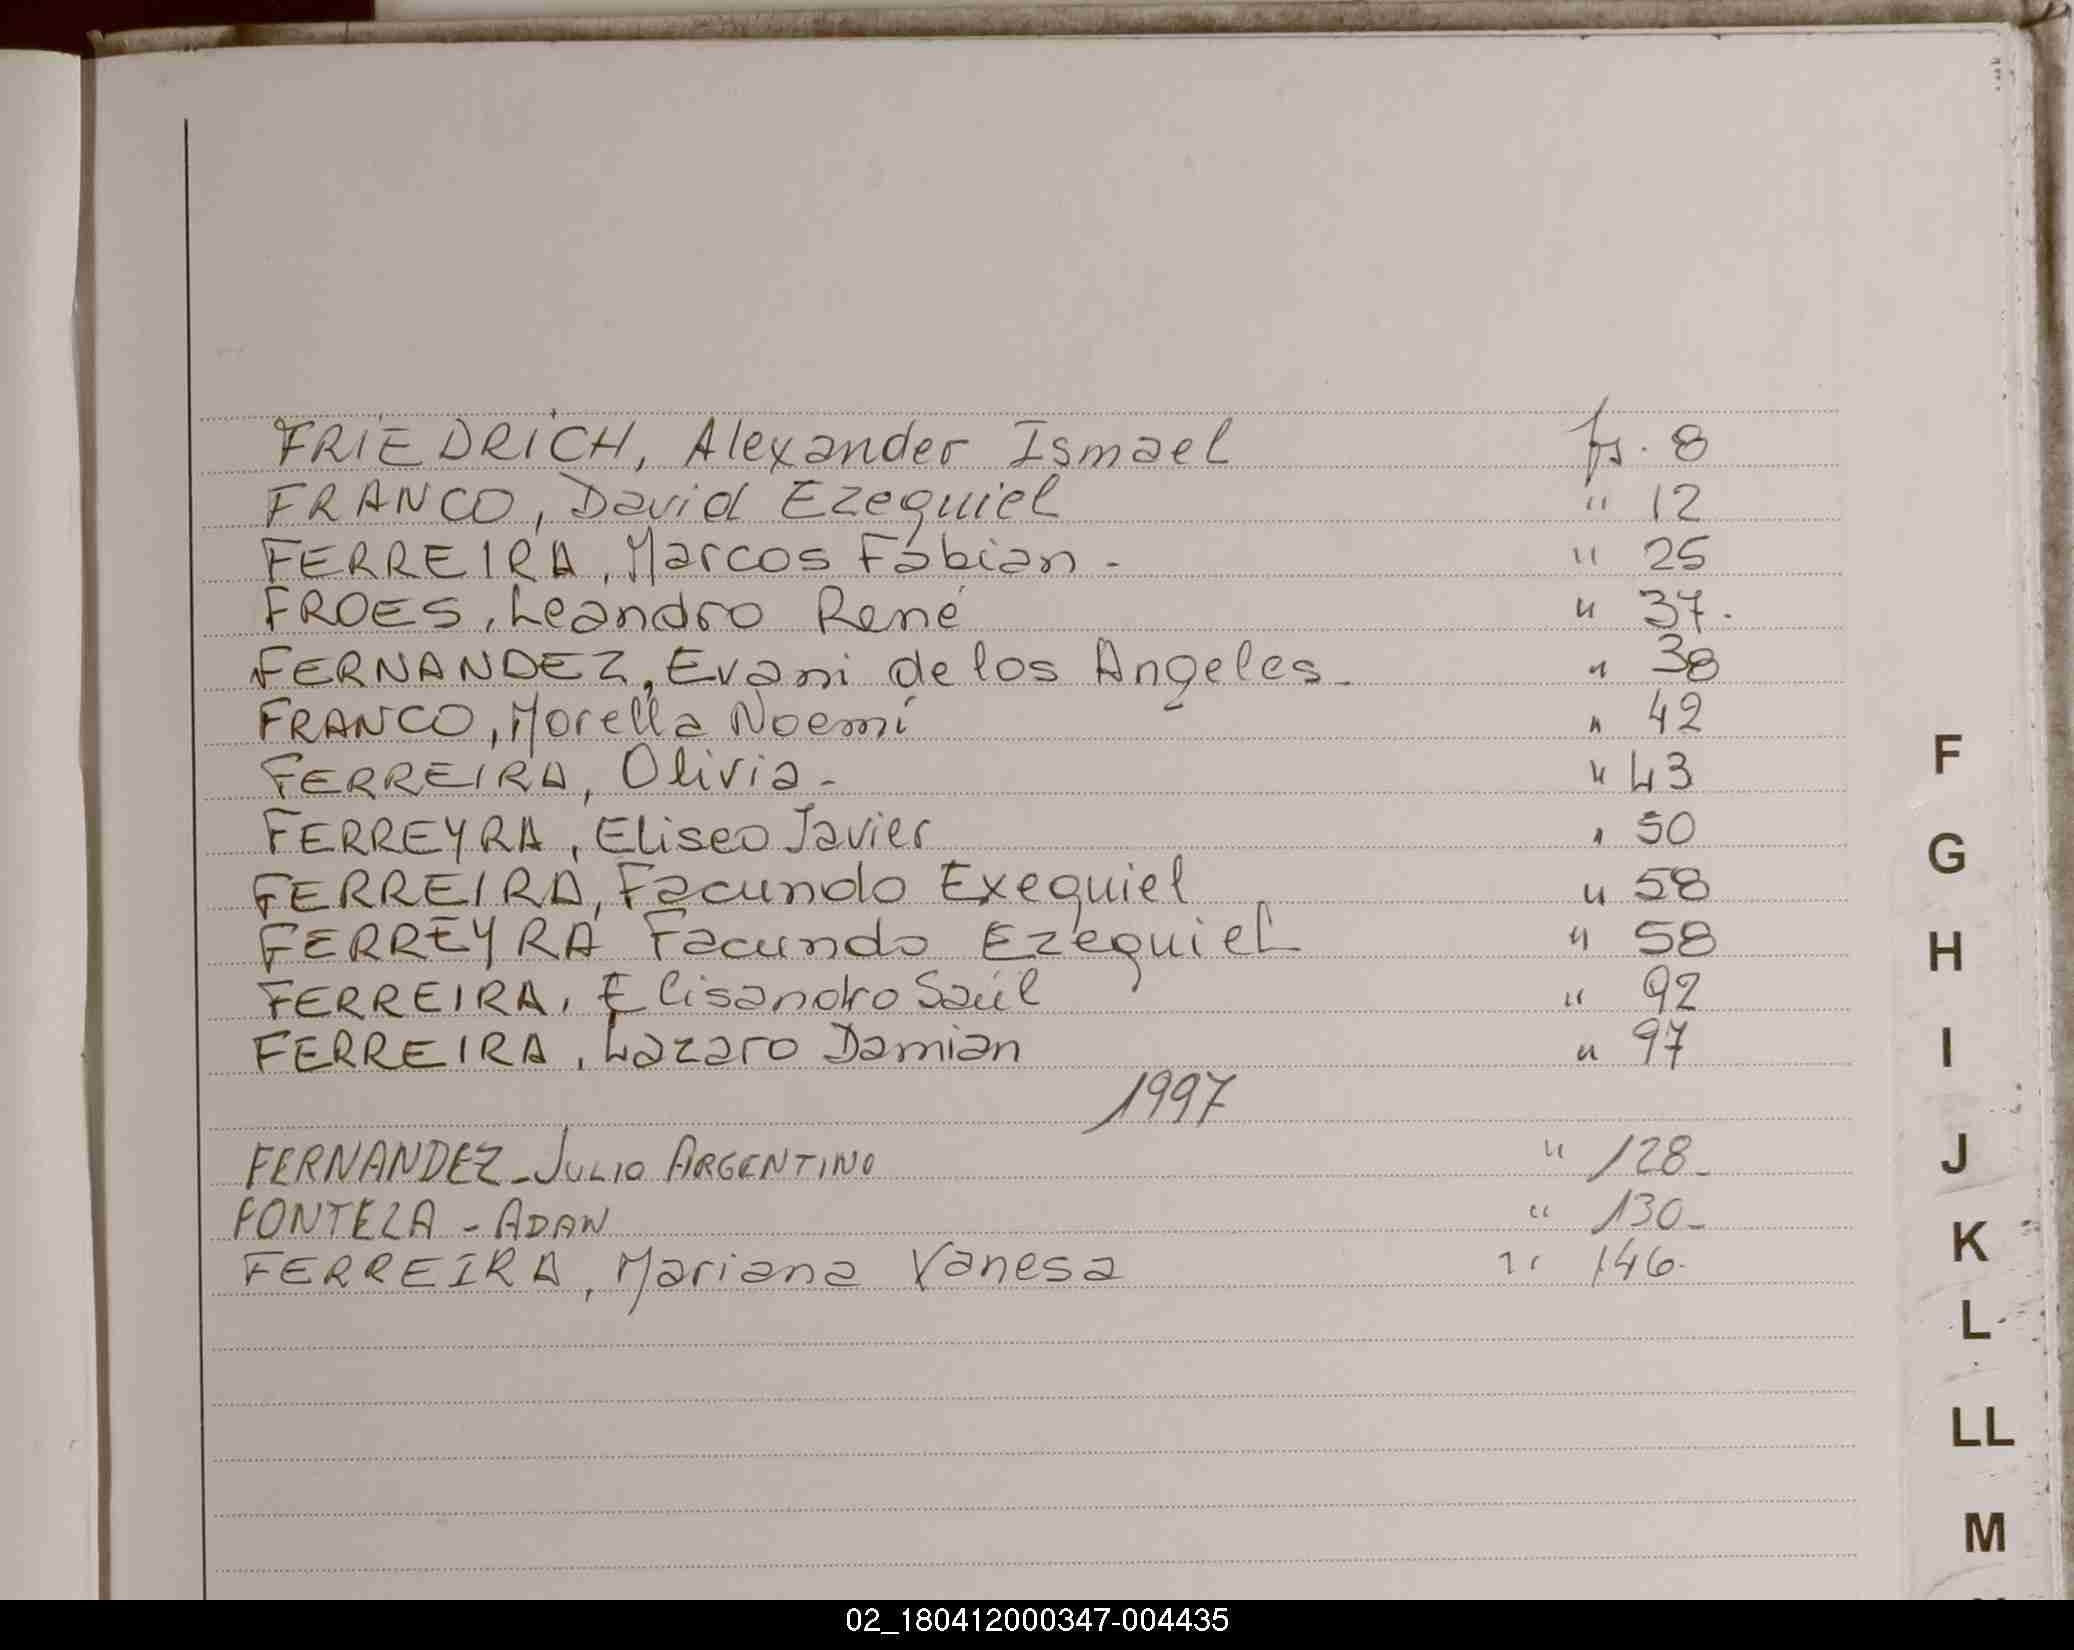 FRIEDRICH, Alexander Ismael fs. 8
FRANCO, David Ezequiel " 12
FERREIRA, Marcos Fabian - " 25
FROES, Leandro René " 37.
FERNANDEZ, Evani de los Angeles - " 38
FRANCO, Morella Noemí " 42
FERREIRA, Olivia - " 43
FERREYRA, Eliseo Javier " 50
FERREIRA, Facundo Exequiel " 58
FERREYRA Facundo Ezequiel " 58
FERREIRA, Elisandro Saúl " 92
FERREIRA, Lazaro Damian " 97
1997
FERNANDEZ - JULIO ARGENTINO " 128 -
FONTELA - ADAN " 130 -
FERREIRA, Mariana Vanesa " 146.
F
G
H
I
J
K
L
LL
M
02_180412000347-004435